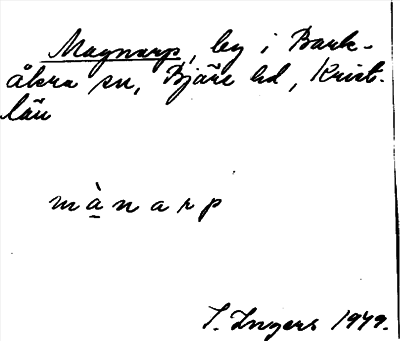 Magnarp, by i Bark-
åkra sn, Bjäre hd, Krist.
län
m à n a r p
I. Ingers 1949.